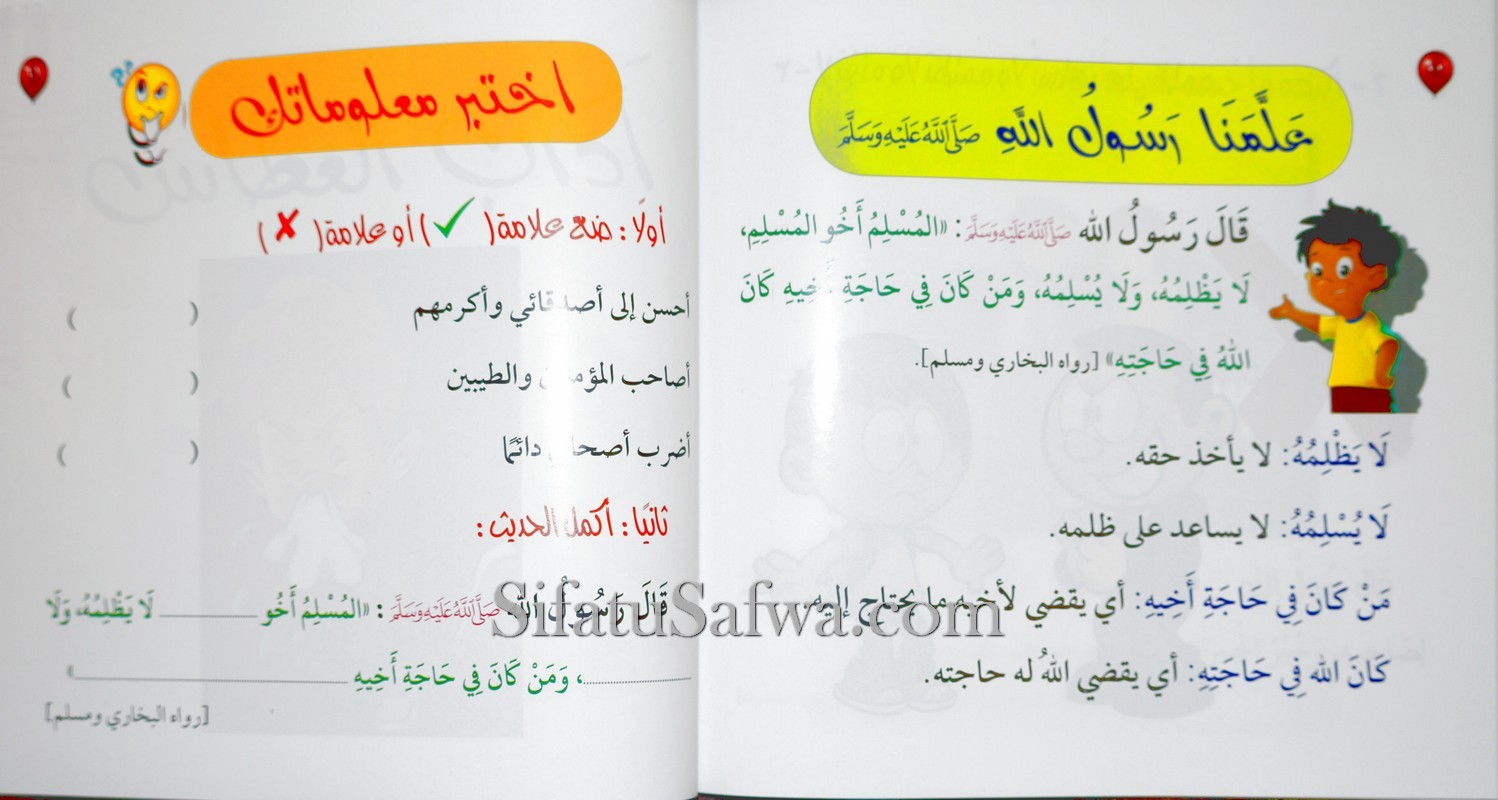 ٦٠
عَلَّمَنَا رَسُولُ اللهِ صَلَّى اللَّهُ عَلَيْهِ وَسَلَّمَ
قَالَ رَسُولُ الله صَلَّى اللَّهُ عَلَيْهِ وَسَلَّمَ: «المُسْلِمُ أَخُو المُسْلِمِ،
لَا يَظْلِمُهُ، وَلَا يُسْلِمُهُ، وَمَنْ كَانَ فِي حَاجَةِ أَخِيهِ كَانَ
اللهُ فِي حَاجَتِهِ» [رواه البخاري ومسلم].
لَا يَظْلِمُهُ: لا يأخذ حقه.
لَا يُسْلِمُهُ: لا يساعد على ظلمه.
مَنْ كَانَ فِي حَاجَةِ أَخِيهِ: أي يقضي لأخيه ما يحتاج إليه.
كَانَ الله فِي حَاجَتِهِ: أي يقضي اللهُ له حاجته.
٦١
اختبر معلوماتك
أولًا: ضع علامة (✓) أو علامة (✗)
أحسن إلى أصدقائي وأكرمهم ( )
أصاحب المؤمنين والطيبين ( )
أضرب أصحابي دائمًا ( )
ثانيًا: أكمل الحديث:
قَالَ رَسُولُ الله صَلَّى اللَّهُ عَلَيْهِ وَسَلَّمَ: «المُسْلِمُ أَخُو ________ لَا يَظْلِمُهُ، وَلَا
........................، وَمَنْ كَانَ فِي حَاجَةِ أَخِيهِ ________________»
[رواه البخاري ومسلم]
SifatuSafwa.com